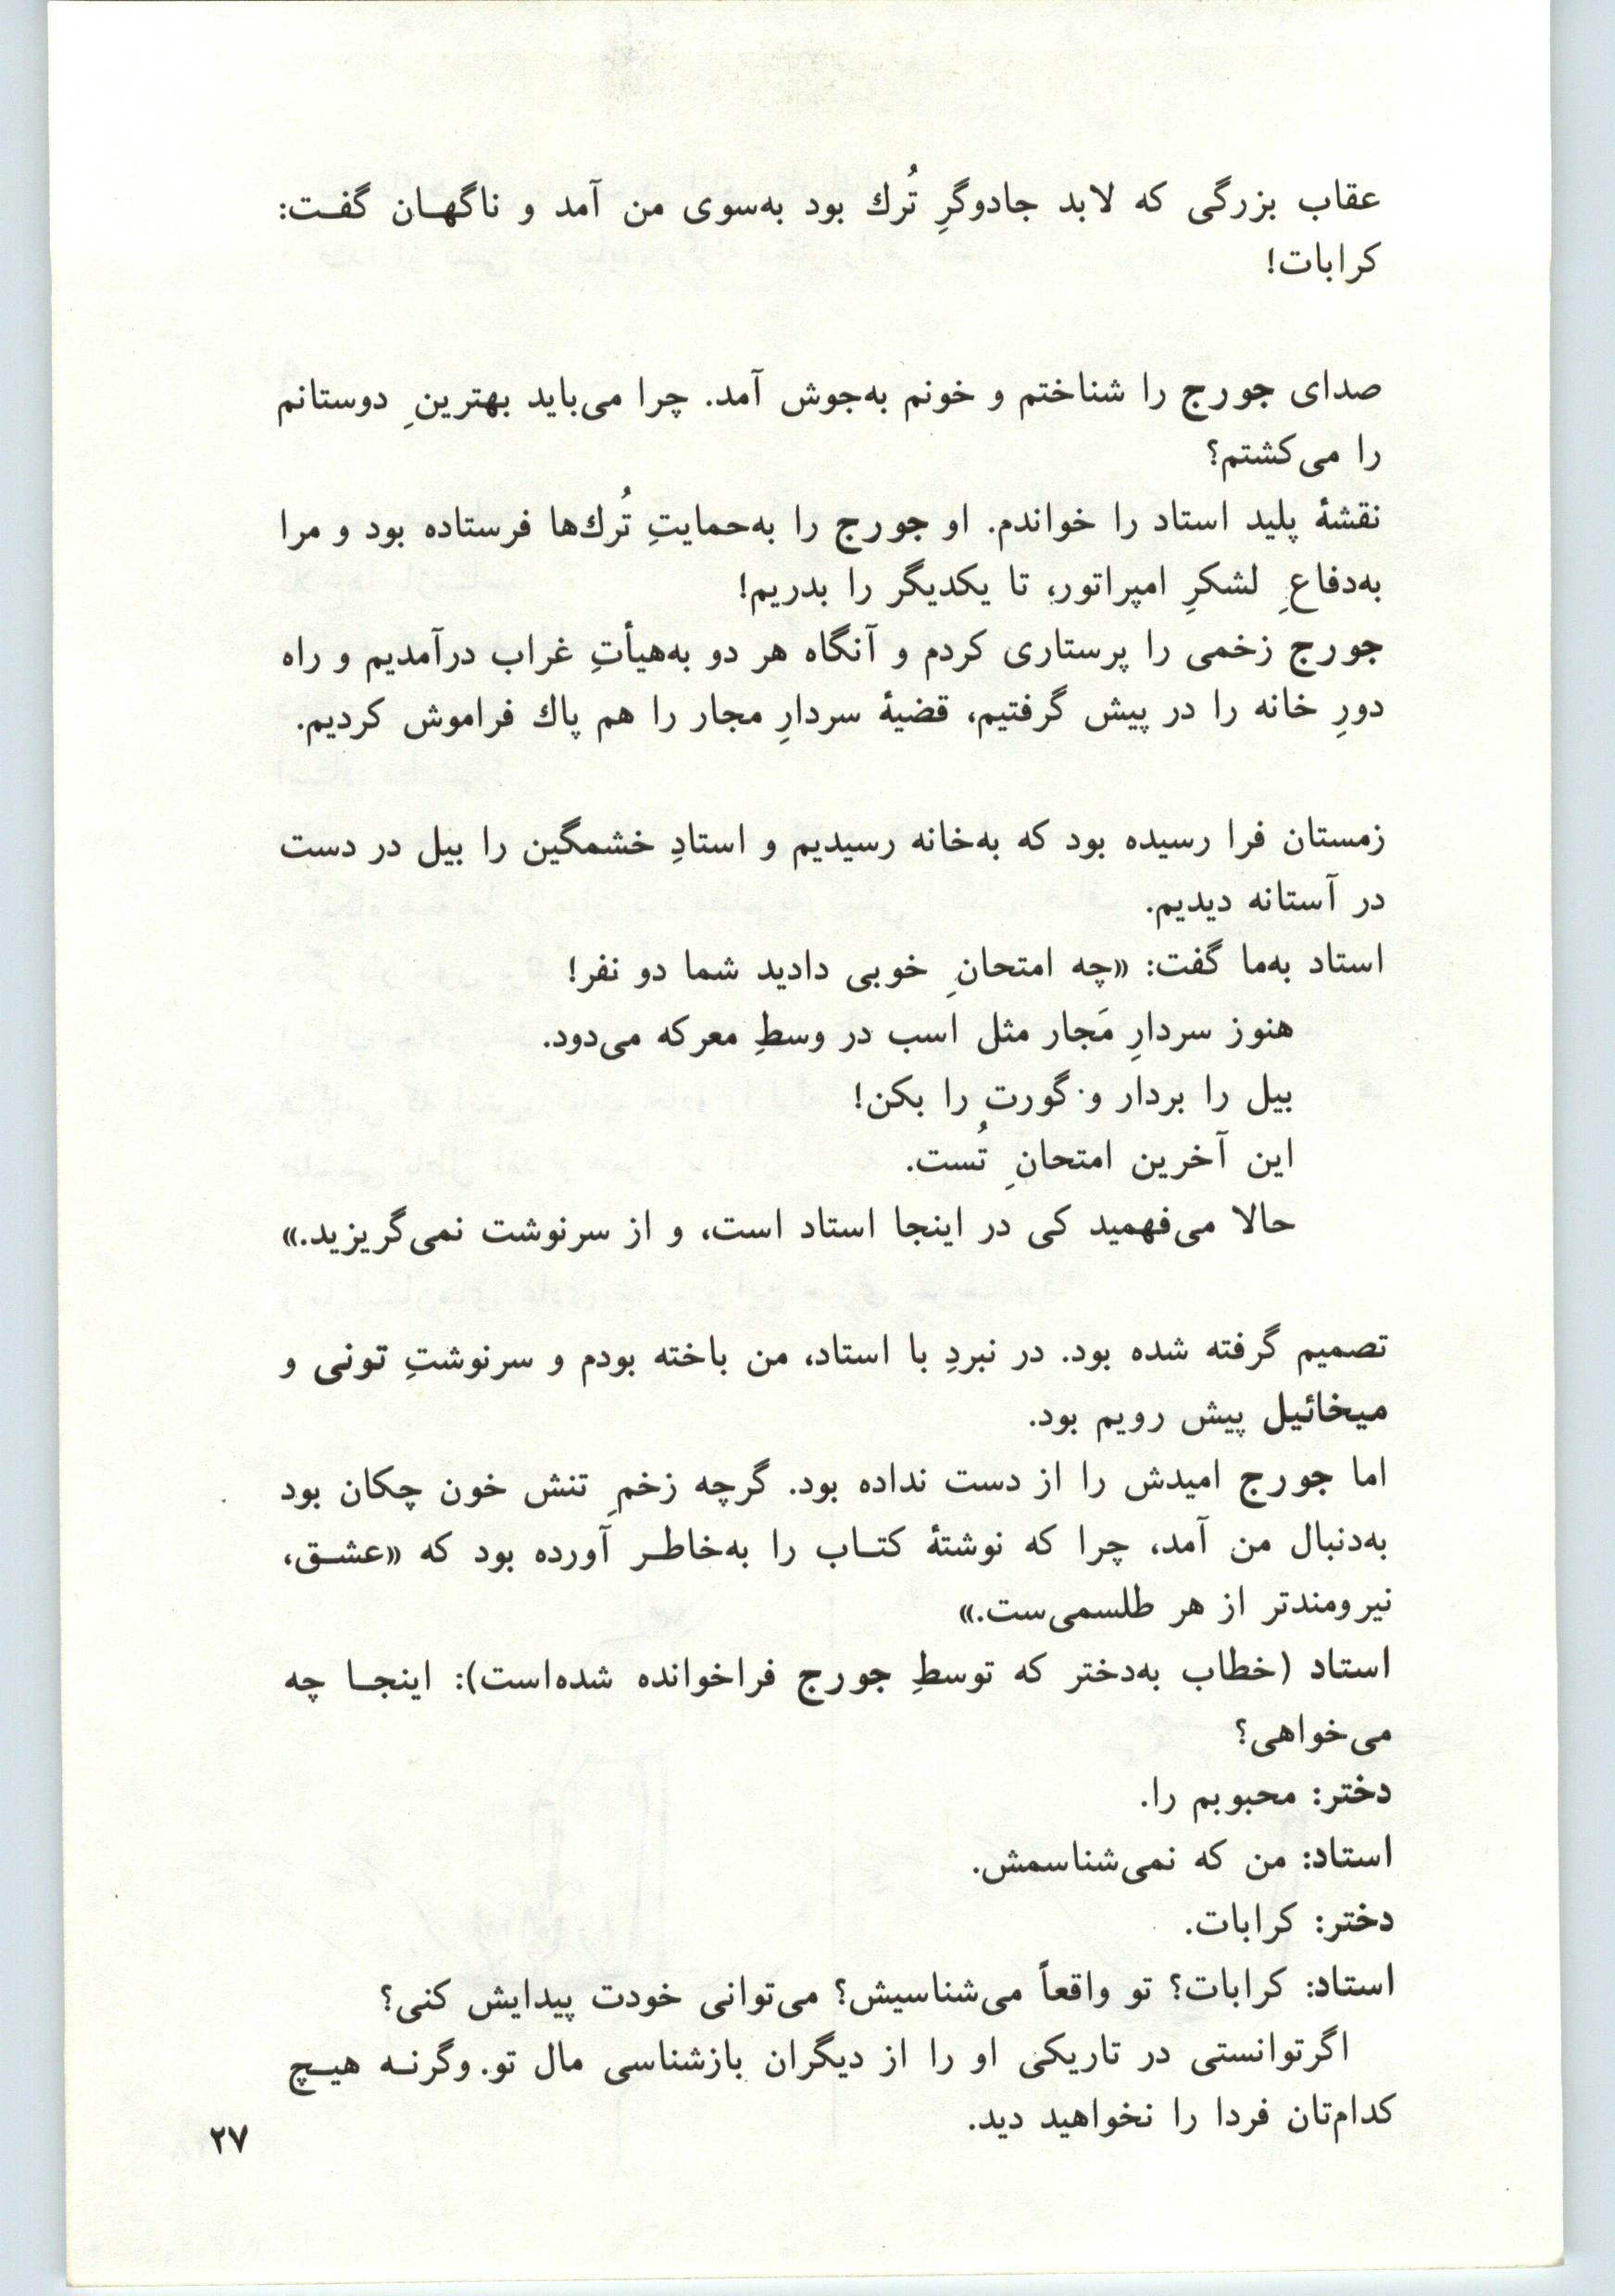 عقاب بزرگی که لابد جادوگرِ تُرك بود به‌سوی من آمد و ناگهـان گفـت:
کرابات!
صدای جورج را شناختم و خونم به‌جوش آمد. چرا می‌باید بهترینِ دوستانم
را می‌کشتم؟
نقشهٔ پلید استاد را خواندم. او جورج را به‌حمایتِ تُرك‌ها فرستاده بود و مرا
به‌دفاعِ لشکرِ امپراتور، تا یکدیگر را بدریم!
جورج زخمی را پرستاری کردم و آنگاه هر دو به‌هیأتِ غراب درآمدیم و راه
دورِ خانه را در پیش گرفتیم، قضیهٔ سردارِ مجار را هم پاك فراموش کردیم.
زمستان فرا رسیده بود که به‌خانه رسیدیم و استادِ خشمگین را بیل در دست
در آستانه دیدیم.
استاد به‌ما گفت: «چه امتحانِ خوبی دادید شما دو نفر!
هنوز سردارِ مَجار مثل اسب در وسطِ معرکه می‌دود.
بیل را بردار و گورت را بکن!
این آخرین امتحانِ تُست.
حالا می‌فهمید کی در اینجا استاد است، و از سرنوشت نمی‌گریزید.»
تصمیم گرفته شده بود. در نبردِ با استاد، من باخته بودم و سرنوشتِ تونی و
میخائیل پیش رویم بود.
اما جورج امیدش را از دست نداده بود. گرچه زخمِ تنش خون چکان بود
به‌دنبال من آمد، چرا که نوشتهٔ کتـاب را به‌خاطـر آورده بود که «عشـق،
نیرومندتر از هر طلسمی‌ست.»
استاد (خطاب به‌دختر که توسطِ جورج فراخوانده شده‌است): اینجـا چه
می‌خواهی؟
دختر: محبوبم را.
استاد: من که نمی‌شناسمش.
دختر: کرابات.
استاد: کرابات؟ تو واقعاً می‌شناسیش؟ می‌توانی خودت پیدایش کنی؟
اگرتوانستی در تاریکی او را از دیگران بازشناسی مال تو. وگرنـه هیـچ
کدام‌تان فردا را نخواهید دید.
۲۷